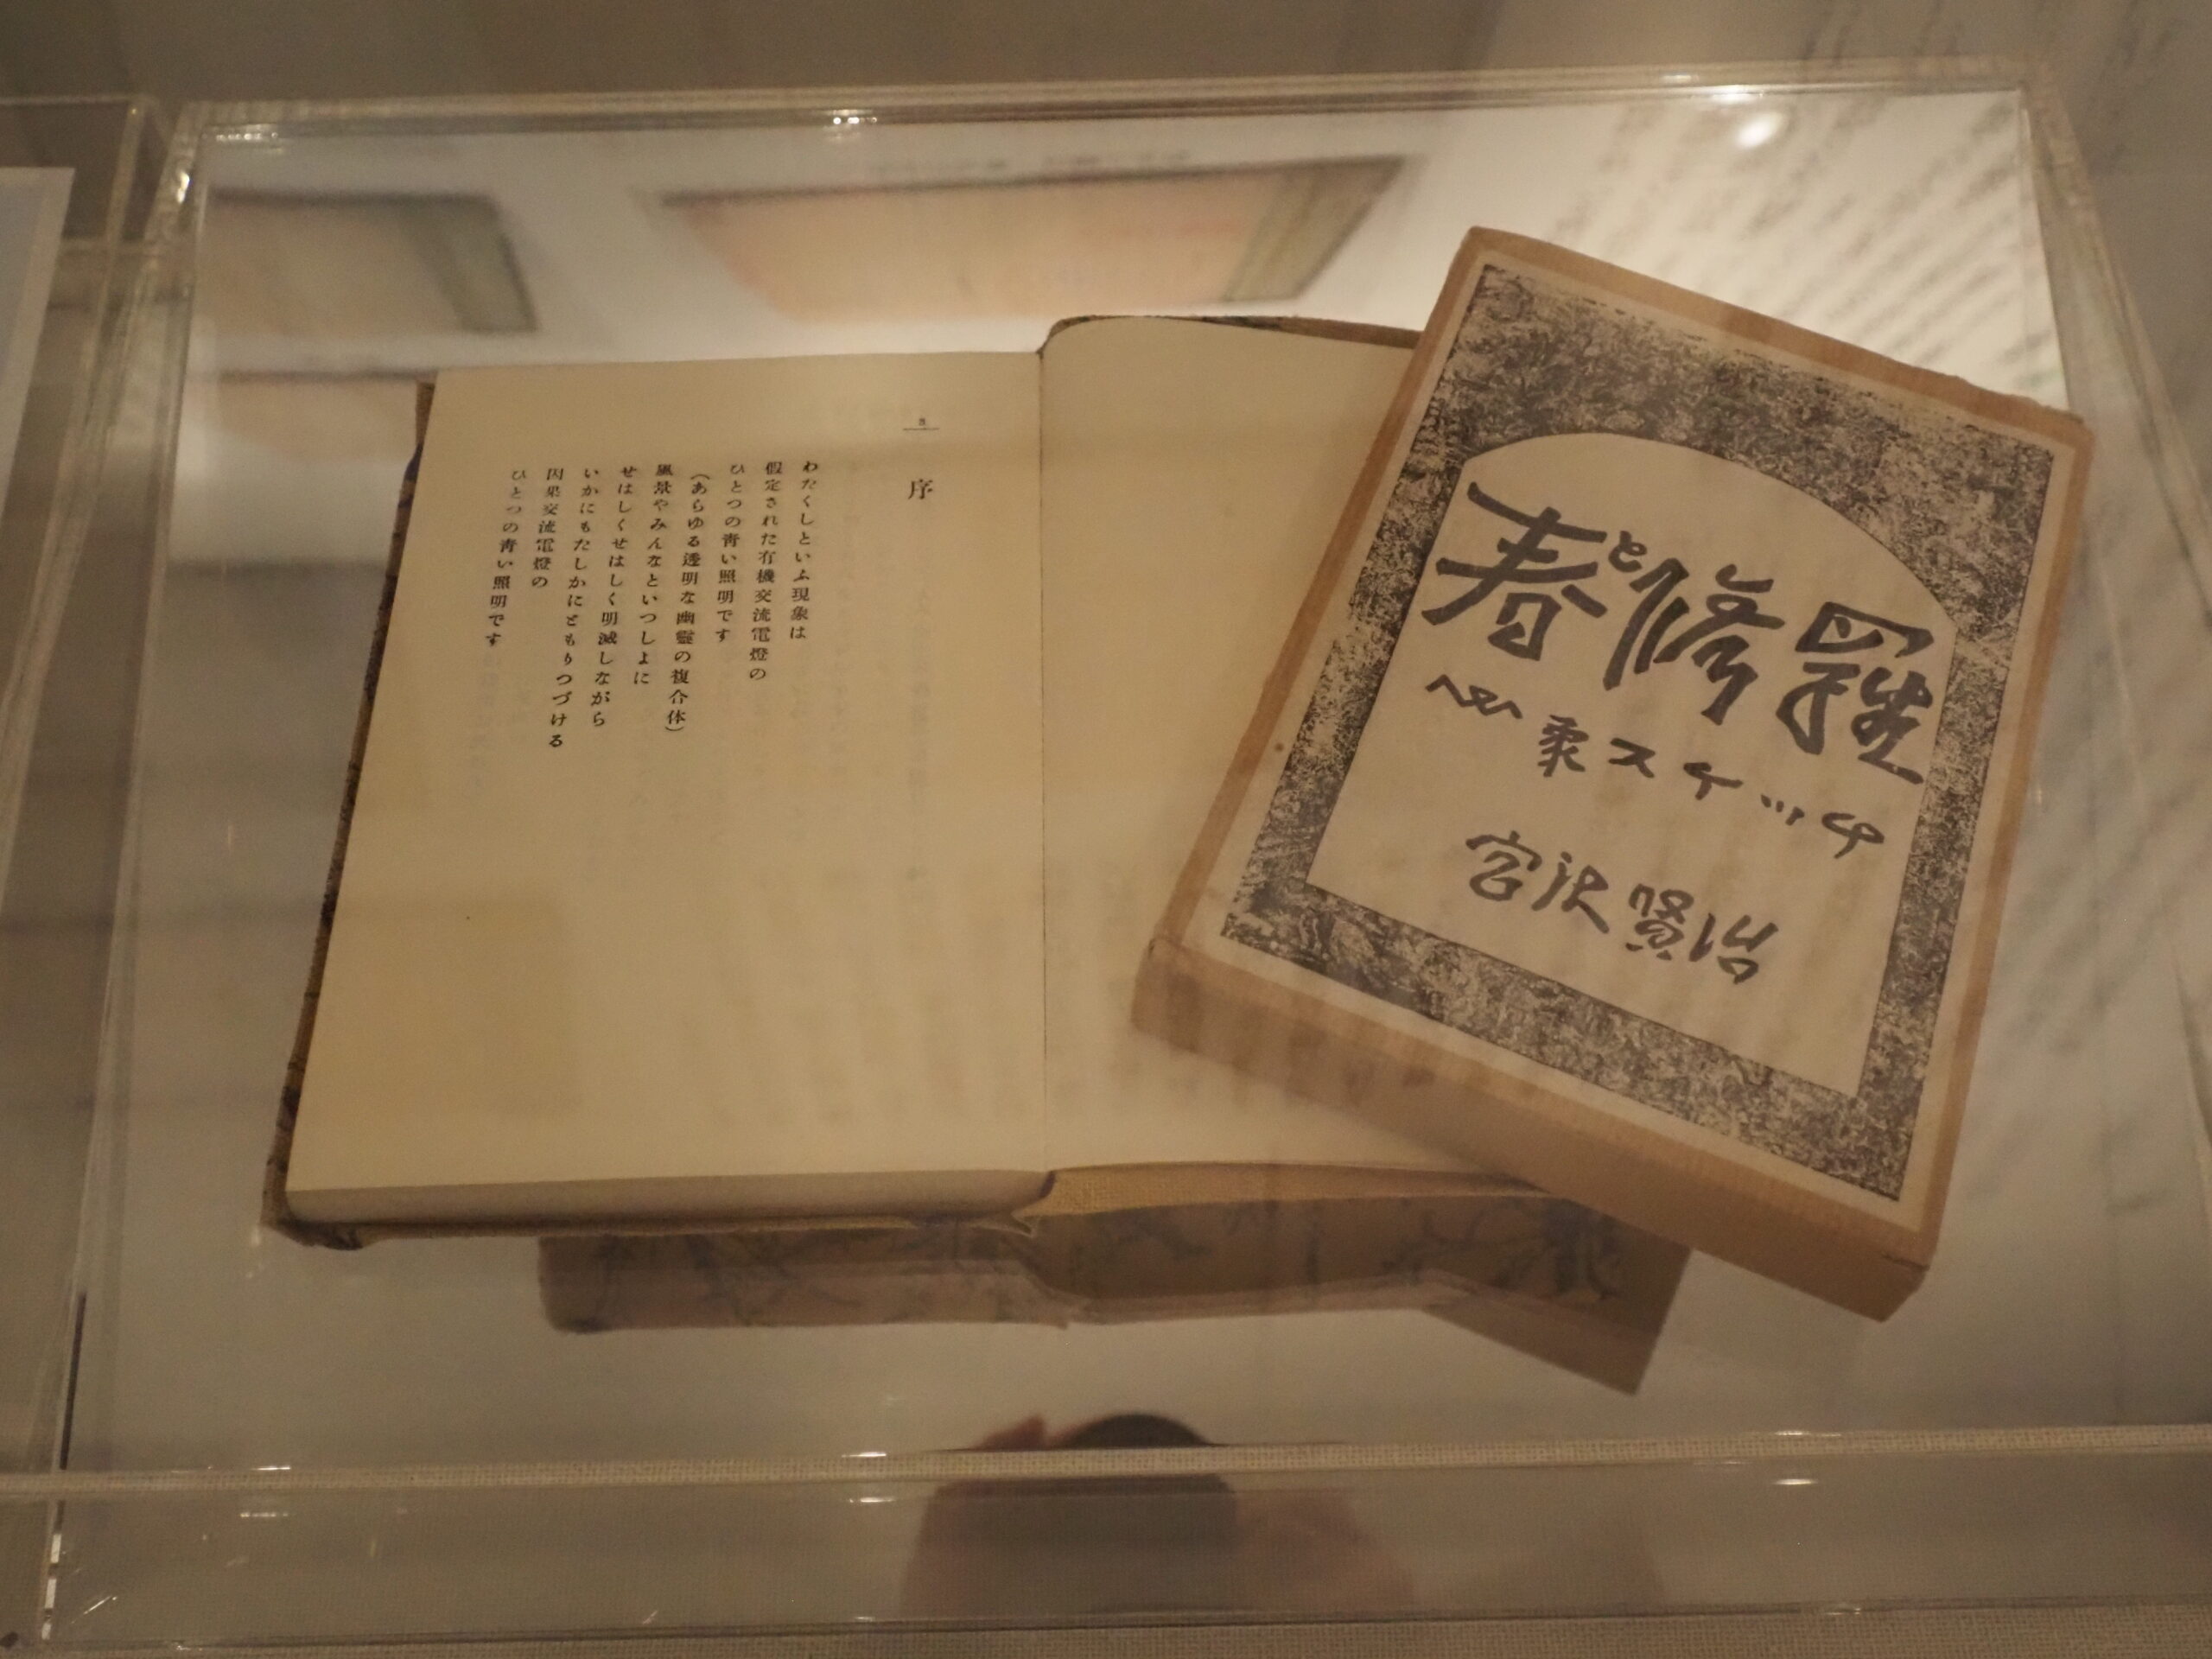 序
わたくしといふ現象は
假定された有機交流電燈の
ひとつの青い照明です
（あらゆる透明な幽靈の複合体）
風景やみんなといつしよに
せはしくせはしく明滅しながら
いかにもたしかにともりつづける
因果交流電燈の
ひとつの青い照明です
春と修羅
心象スケッチ
宮沢賢治